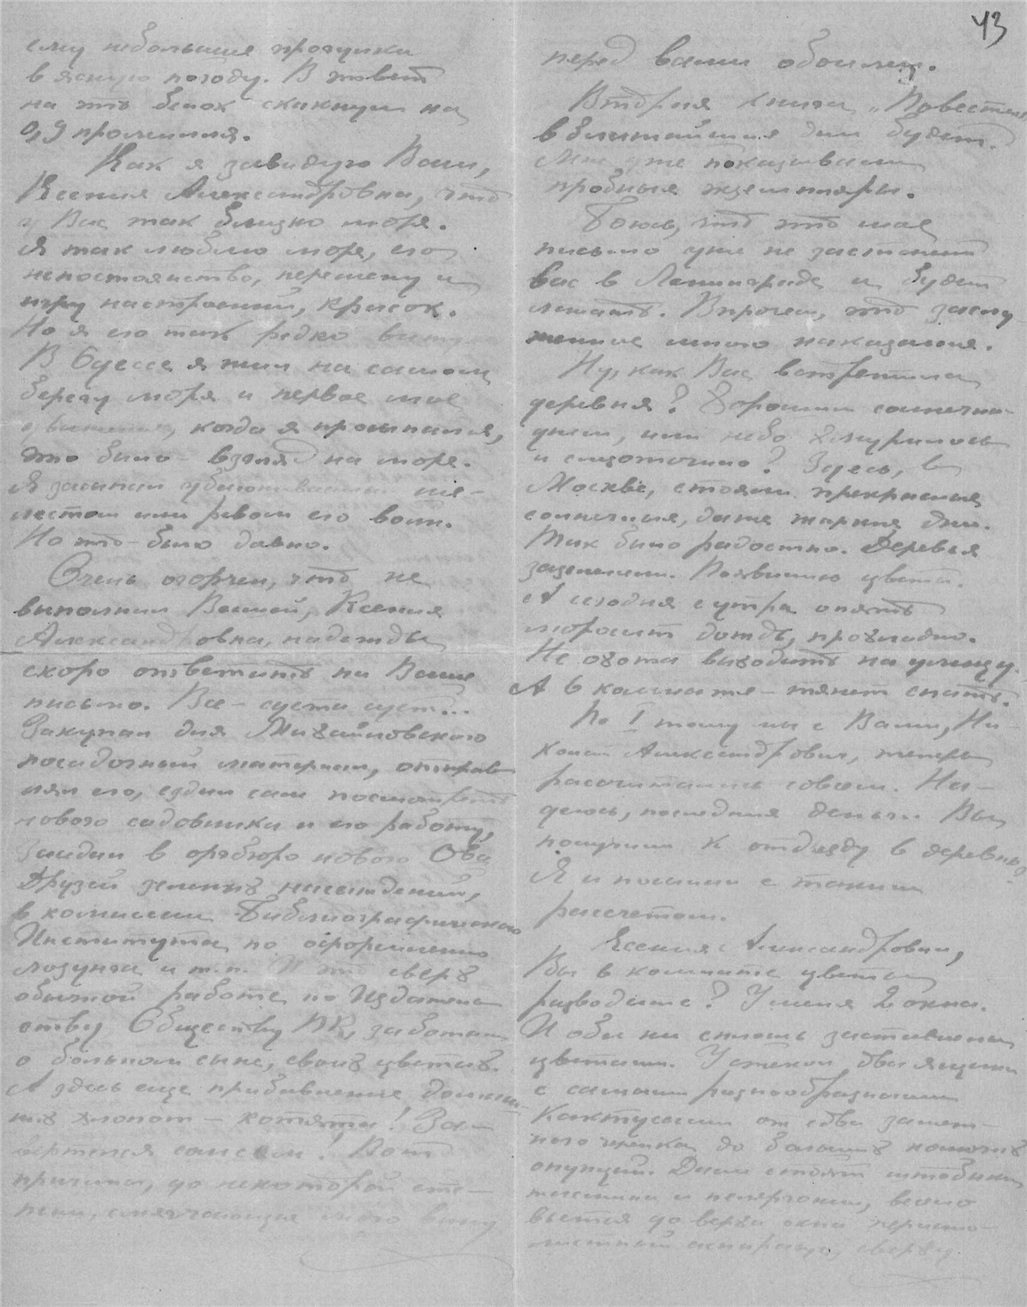 ему небольшие прогулки
в ясную погоду. В ответ
на это белок скакнул на
0,9 промилля.
Как я завидую Вам,
Ксения Александровна, что
у Вас так близко море.
Я так люблю море, его
непостоянство, перемену и
игру настроений, красок.
Но я его так редко
В Одессе я жил на самом
берегу моря и первое мое
движение, когда я просыпался,
это было – взгляд на море.
Я засыпал убаюкиваемый ше-
лестом или ревом его волн.
Но это было давно.
Очень огорчен, что не
выполнил Вашей, Ксения
Александровна, надежды
скоро ответить на Ваше
письмо. Все – суета сует...
Закупал для Михайловского
посадочный материал, отправ
лял его, ездил сам посмотреть
нового садовника и его работу,
заседал в оргбюро нового О-ва
Друзей зеленых насаждений,
в комиссии Библиографического
Института по оформлению
лозунга и т.п. И это сверх
обычной работы по Издатель
ству, Обществу ВК, заботам
о больном сыне, своих цветах.
А здесь еще прибавление домаш
них хлопот – котята! За-
вертелся совсем! Вот
причина, до некоторой сте-
пени, смягчающая мою вину
43
перед вами обоими.
Вторая книга „Повестей
в ближайшие дни будет.
Мне уже показывали
пробные экземпляры.
Боюсь, что это мое
письмо уже не застанет
вас в Ленинграде и будет
лежать. Впрочем, это заслу-
женное мною наказание.
Ну, как Вас встретила
деревня? Хорошим солнечным
днем, или небо хмурилось
и слезоточило? Здесь, в
Москве, стояли прекрасные
солнечные, даже жаркие дни.
Так было радостно. Деревья
зазеленели. Появились цветы.
А сегодня с утра опять
моросит дождь, прохладно.
Не охота выходить на улицу.
А в комнате – тянет спать.
По I тому мы с Вами, Ни-
колай Александрович, теперь
рассчитались совсем. На-
деюсь, последние деньги Вы
получили к отъезду в деревню.
Я и послал с таким
рассчетом.
Ксения Александровна,
Вы в комнате цветы
разводите? У меня 2 окна.
И оба они сплошь заставлены
цветами. У стекол два ящика
с самыми разнообразными
кактусами от едва замет-
ного черенка до больших
опунций. Далее стоят
и пеларгонии,
вьется до верха окна перисто-
листный аспарагус, сверху